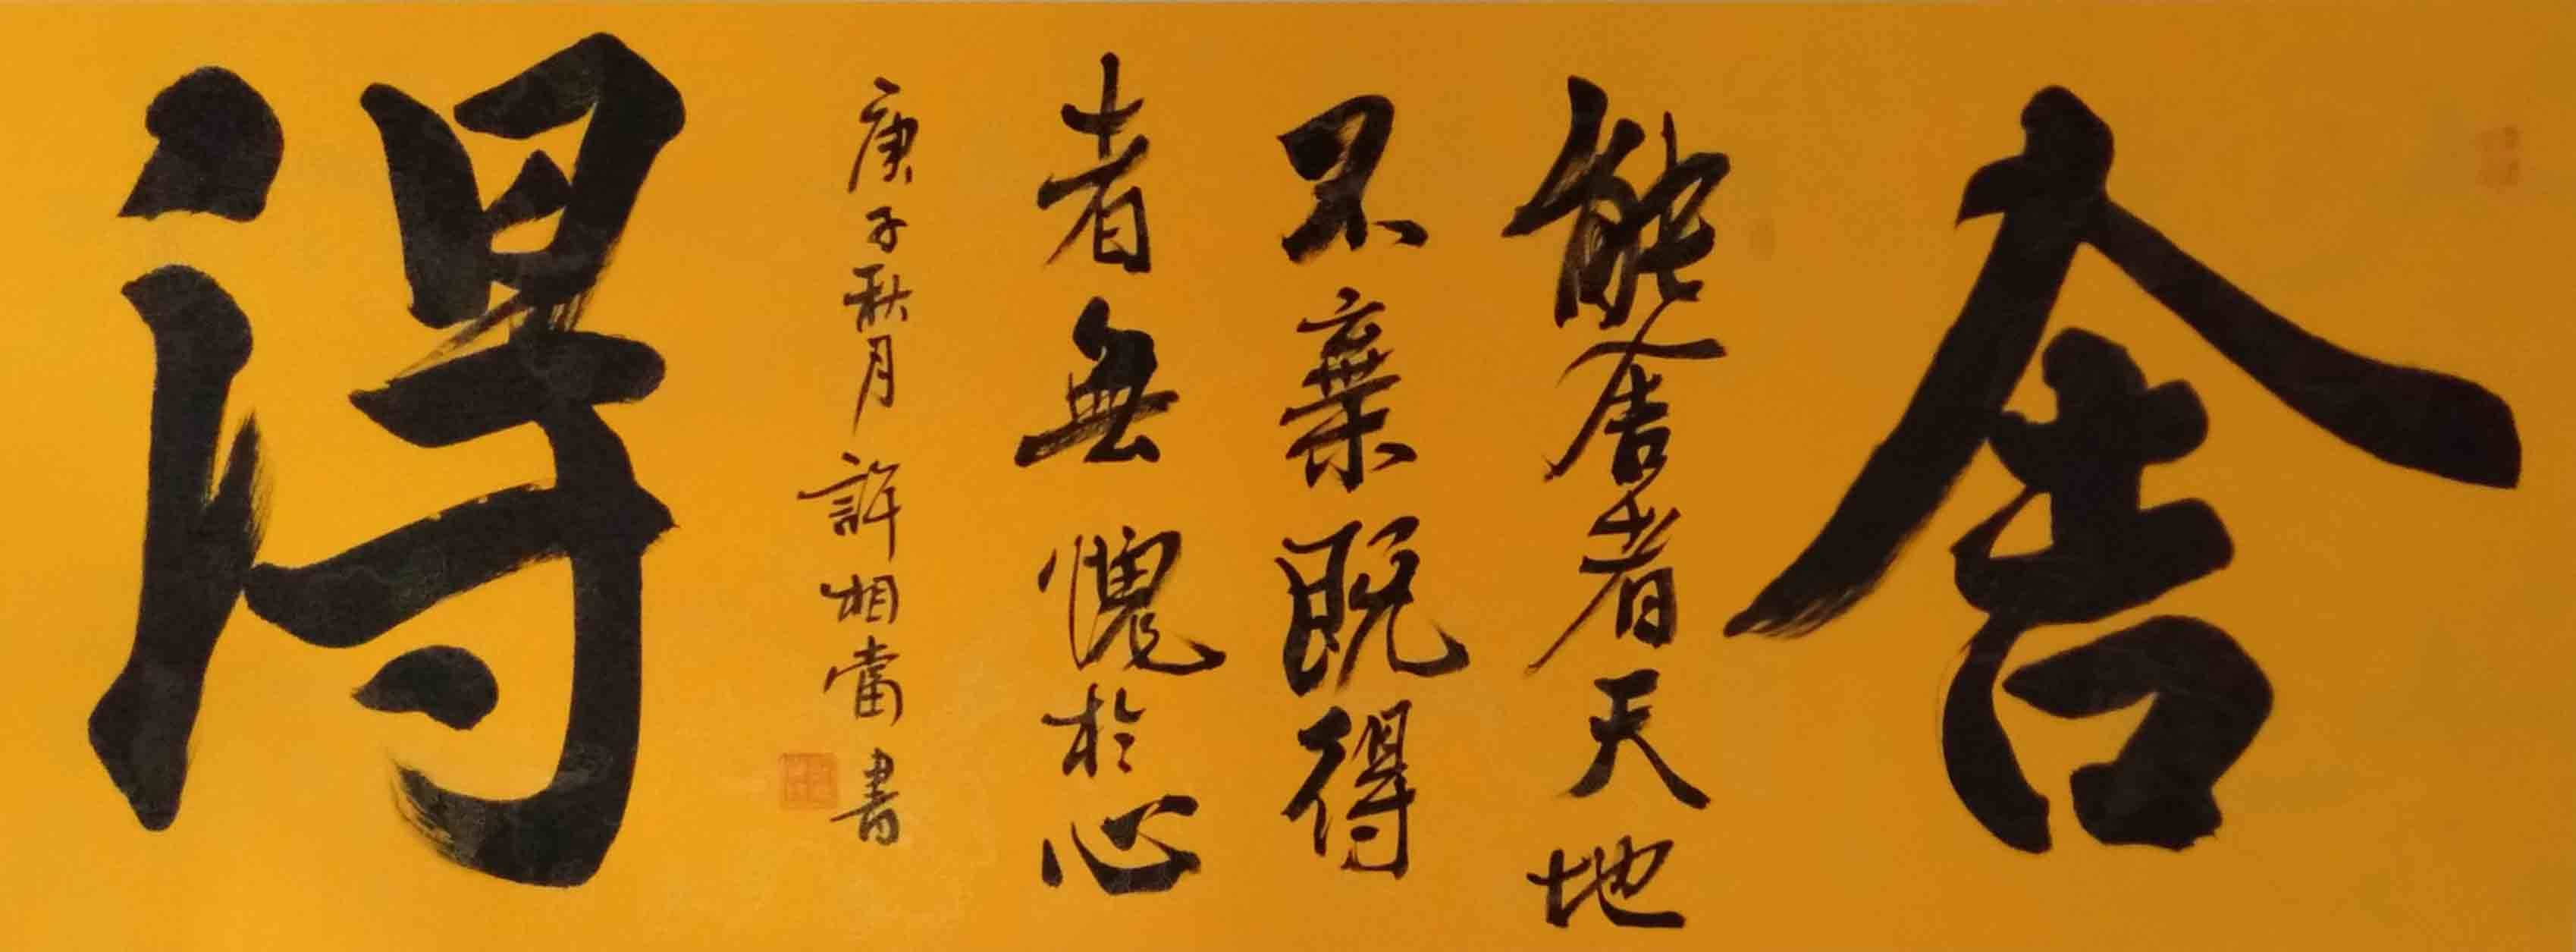 舍
能舍者天地
不棄既得
者無愧於心
庚子秋月許相當書
得